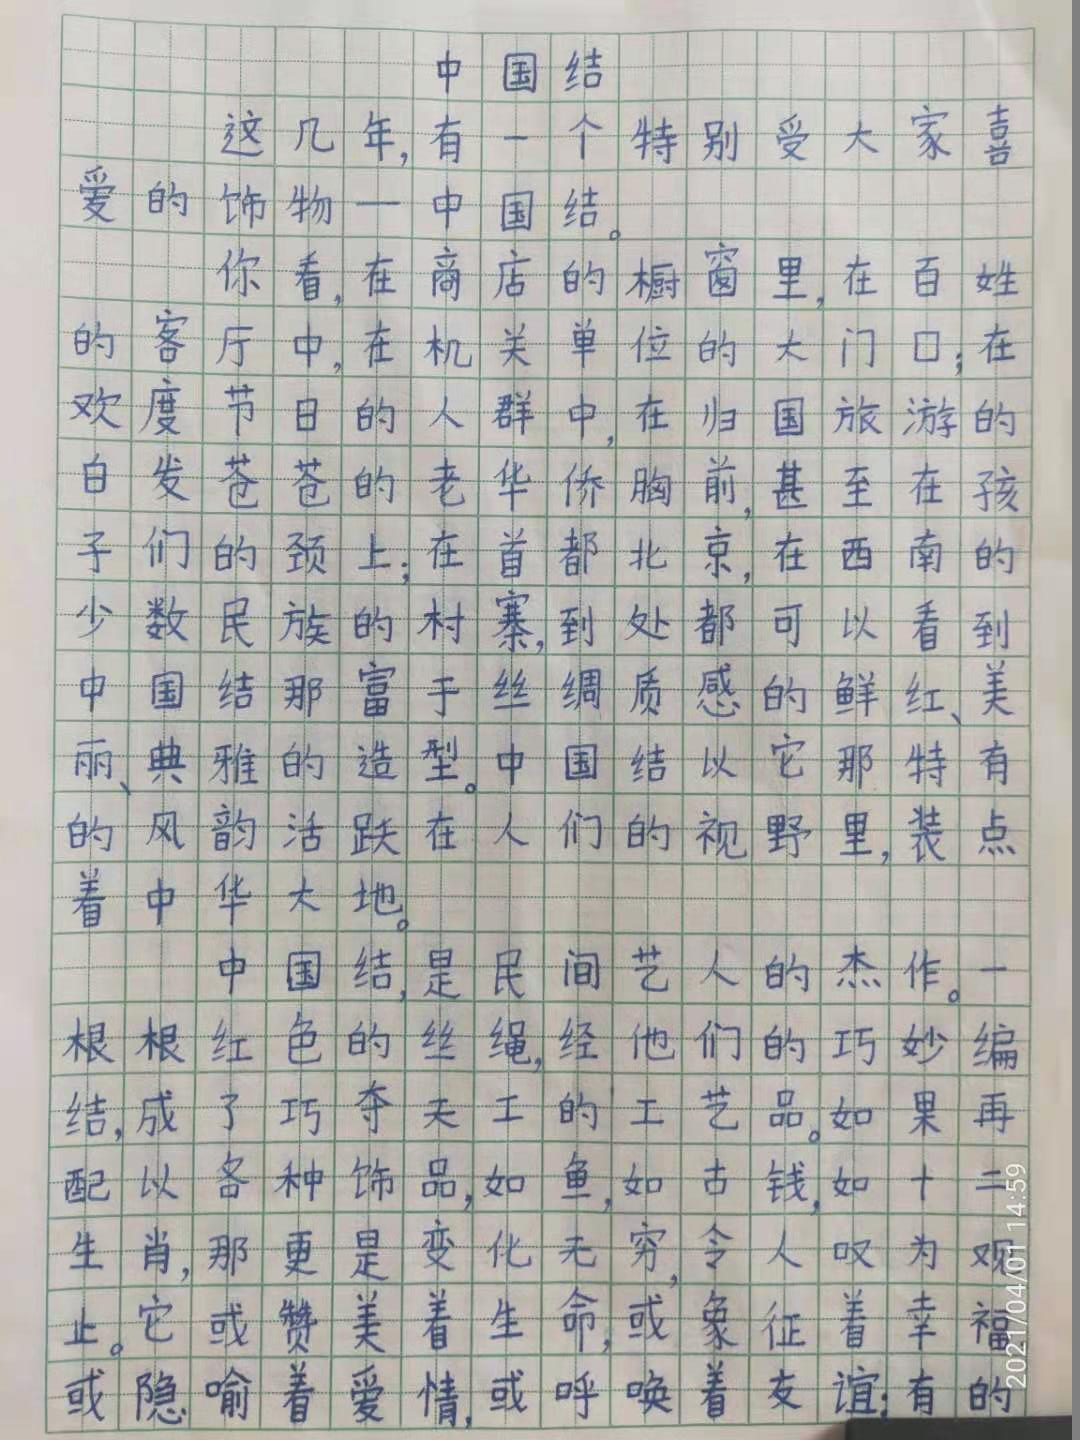 中国结
这几年,有一个特别受大家喜
爱的饰物一中国结。
你看,在商店的橱窗里,在百姓
的客厅中,在机关单位的大门口;在
欢度节日的人群中,在归国旅游的
白发苍苍的老华侨胸前,甚至在孩
子们的颈上;在首都北京,在西南的
少数民族的村寨,到处都可以看到
中国结那富于丝绸质感的鲜红、美
丽、典雅的造型。中国结以它那特有
的风韵活跃在人们的视野里,装点
着中华大地。
中国结,是民间艺人的杰作。一
根根红色的丝绳,经他们的巧妙编
结,成了巧夺天工的工艺品。如果再
配以各种饰品,如鱼,如古钱,如十二
生肖,那更是变化无穷,令人叹为观
止。它或赞美着生命,或象征着幸福
或隐喻着爱情,或呼唤着友谊;有的
2021/04/01 14:59